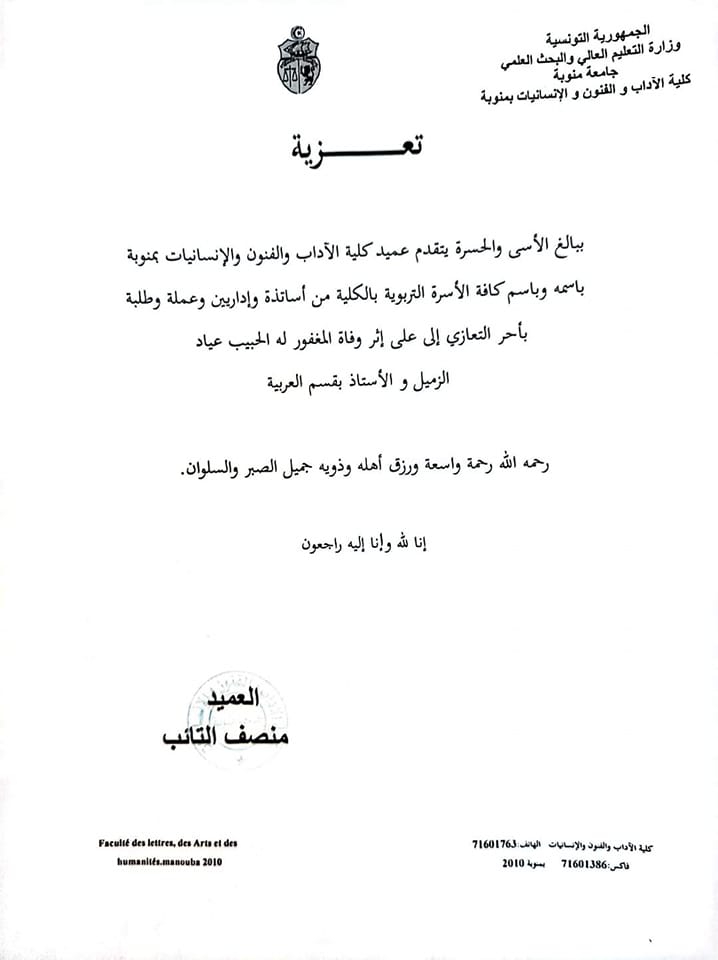 الجمهورية التونسية
وزارة التعليم العالي والبحث العلمي
جامعة منوبة
كلية الآداب و الفنون و الإنسانيات بمنوبة
تعـــــــزية
ببالغ الأسى والحسرة يتقدم عميد كلية الآداب والفنون والإنسانيات بمنوبة
باسمه وباسم كافة الأسرة التربوية بالكلية من أساتذة وإداريين وعملة وطلبة
بأحر التعازي إلى على إثر وفاة المغفور له الحبيب عياد
الزميل و الأستاذ بقسم العربية
رحمه الله رحمة واسعة ورزق أهله وذويه جميل الصبر والسلوان.
إنا لله وإنا إليه راجعون
العميد
منصف التائب
كلية الآداب والفنون والإنسانيات الهاتف:71601763
فاكس:71601386 بمنوبة 2010
Faculté des lettres, des Arts et des
humanités.manouba 2010